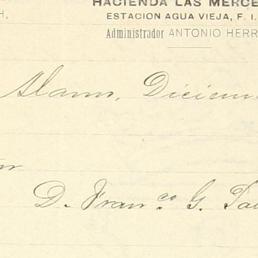 HACIENDA LAS MERCE
H. ESTACION AGUA VIEJA, F. I.
Administrador ANTONIO HERR
Alamo, Diciem
D. Fran co G.